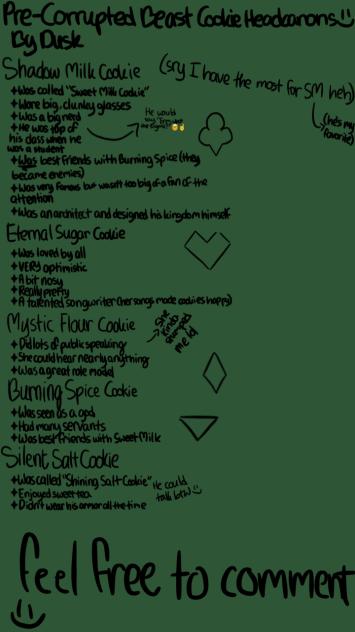 Pre-Corrupted Beast Cookie Headcanons :)
By Dusk
(sry I have the most for SM heh)
(he's my favorite)
Shadow Milk Cookie
+Was called "Sweet Milk Cookie"
+Wore big, clunky glasses
+Was a big nerd
+He was top of
his class when he
was a student
He would
+Was best friends with Burning Spice (they
became enemies)
+Was very famous but wasn't too big of a fan of the
attention
+Was an architect and designed his kingdom himself
Eternal Sugar Cookie
+Was loved by all
+VERY optimistic
+A bit nosy
+Really pretty
+A talented songwriter (her songs made cookies happy)
Mystic Flour Cookie
+Did lots of public speaking
+She could hear nearly anything
+Was a great role model
She
kinda
stumped
me lol
Burning Spice Cookie
+Was seen as a god
+Had many servants
+Was best friends with Sweet Milk
Silent Salt Cookie
+Was called "Shining Salt Cookie"
+Enjoyed sweet tea
+Didn't wear his armor all the time
He could
talk btw :)
feel free to comment
:)